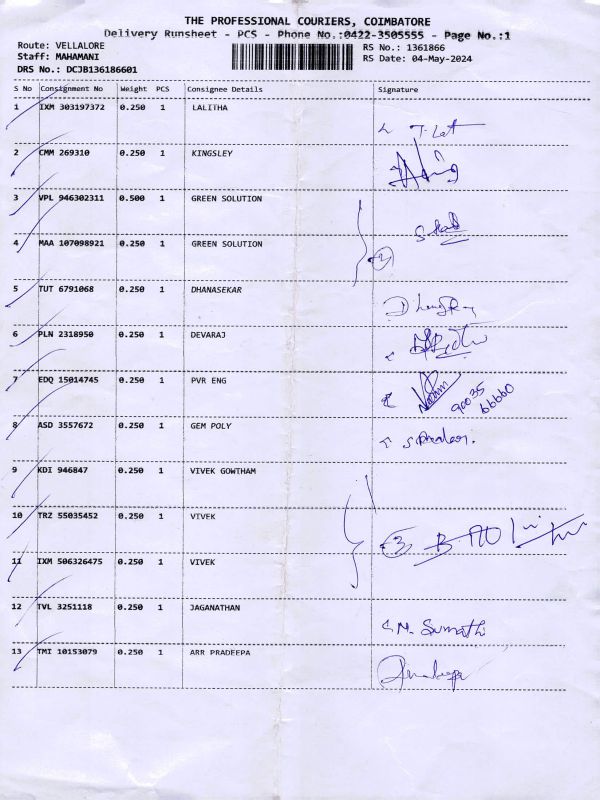 THE PROFESSIONAL COURIERS, COIMBATORE
Delivery Runsheet - PCS - Phone No.:0422-3505555 - Page No.:1
Route: VELLALORE
RS No.: 1361866
Staff: MAHAMANI
RS Date: 04-May-2024
DRS No.: DCJB136186601
S No Consignment No Weight PCS Consignee Details Signature
1 IXM 303197372 0.250 1 LALITHA
2 CMM 269310 0.250 1 KINGSLEY
3 VPL 946302311 0.500 1 GREEN SOLUTION
4 MAA 107098921 0.250 1 GREEN SOLUTION 2
5 TUT 6791068 0.250 1 DHANASEKAR
6 PLN 2318950 0.250 1 DEVARAJ
7 EDQ 15014745 0.250 1 PVR ENG 90035
66660
8 ASD 3557672 0.250 1 GEM POLY
9 KDI 946847 0.250 1 VIVEK GOWTHAM
10 TRZ 55035452 0.250 1 VIVEK 3
11 IXM 506326475 0.250 1 VIVEK
12 TVL 3251118 0.250 1 JAGANATHAN N. Sumathi
13 TMI 10153079 0.250 1 ARR PRADEEPA